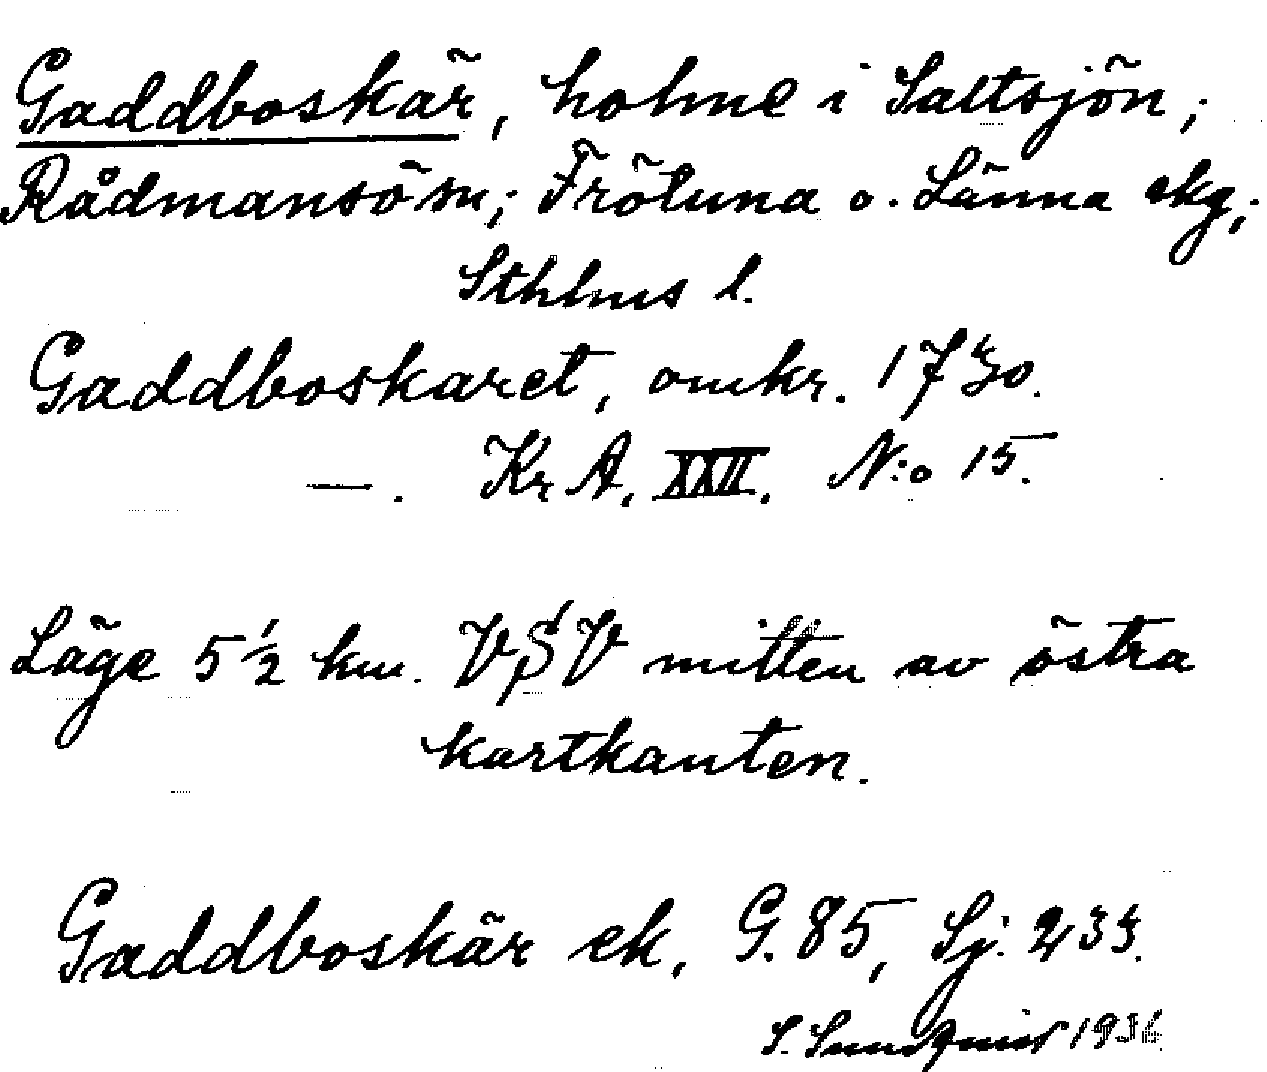 Gaddboskär, holme i Saltsjön;
Rådmansö sn; Frötuna o. Länna skg;
Sthlms l.
Gaddboskaret, omkr. 1730.
—. Kr A. XXII. N:o 15.
Läge 5 1/2 km. VSV mitten av östra
kartkanten.
Gaddboskär ek. G. 85, Sj: 233.
S. Sundquist 1936